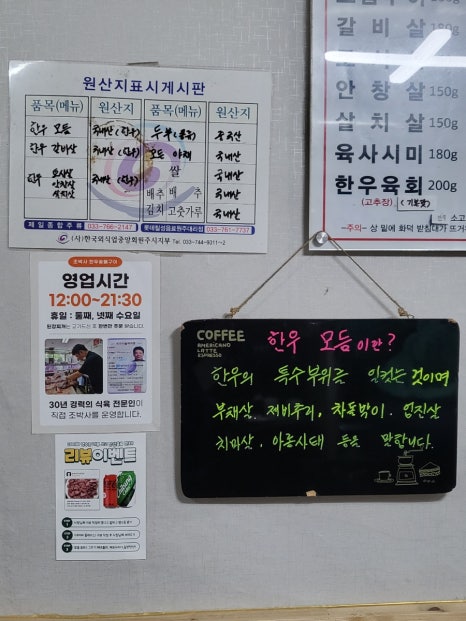 원산지표시게시판
품목(메뉴) 원산지 품목(메뉴) 원산지
한우 모듬 국내산(한우) 두부(콩) 중국산
한우 갈비살 국내산(한우) 모듬 야채 국내산
한우 국내산(한우) 쌀 국내산
안창살
배추 배추 국내산
김치 고춧가루 국내산
제일종합주류 033-766-2147 롯데칠성음료원주대리점 033-761-7737
(사)한국외식업중앙회원주시지부 Tel. 033-744-9211~2
갈비살
안창살 150g
살치살 150g
육사시미 180g
한우육회 200g
(고추장) (기본찜)
소고
-주의- 상 밑에 화덕 받침대가 뜨거
초박사 한우숯불구이
영업시간
12:00~21:30
휴일 : 둘째, 넷째 수요일
30년 경력의 식육 전문인이
직접 조박사를 운영합니다.
리뷰이벤트
COFFEE
AMERICANO
LATTE
ESPRESSO
한우 모듬이란?
한우의 특수부위를 일컫는 것이며
부채살. 제비추리, 차돌박이. 업진살
치마살. 아롱사태 등을 말합니다.